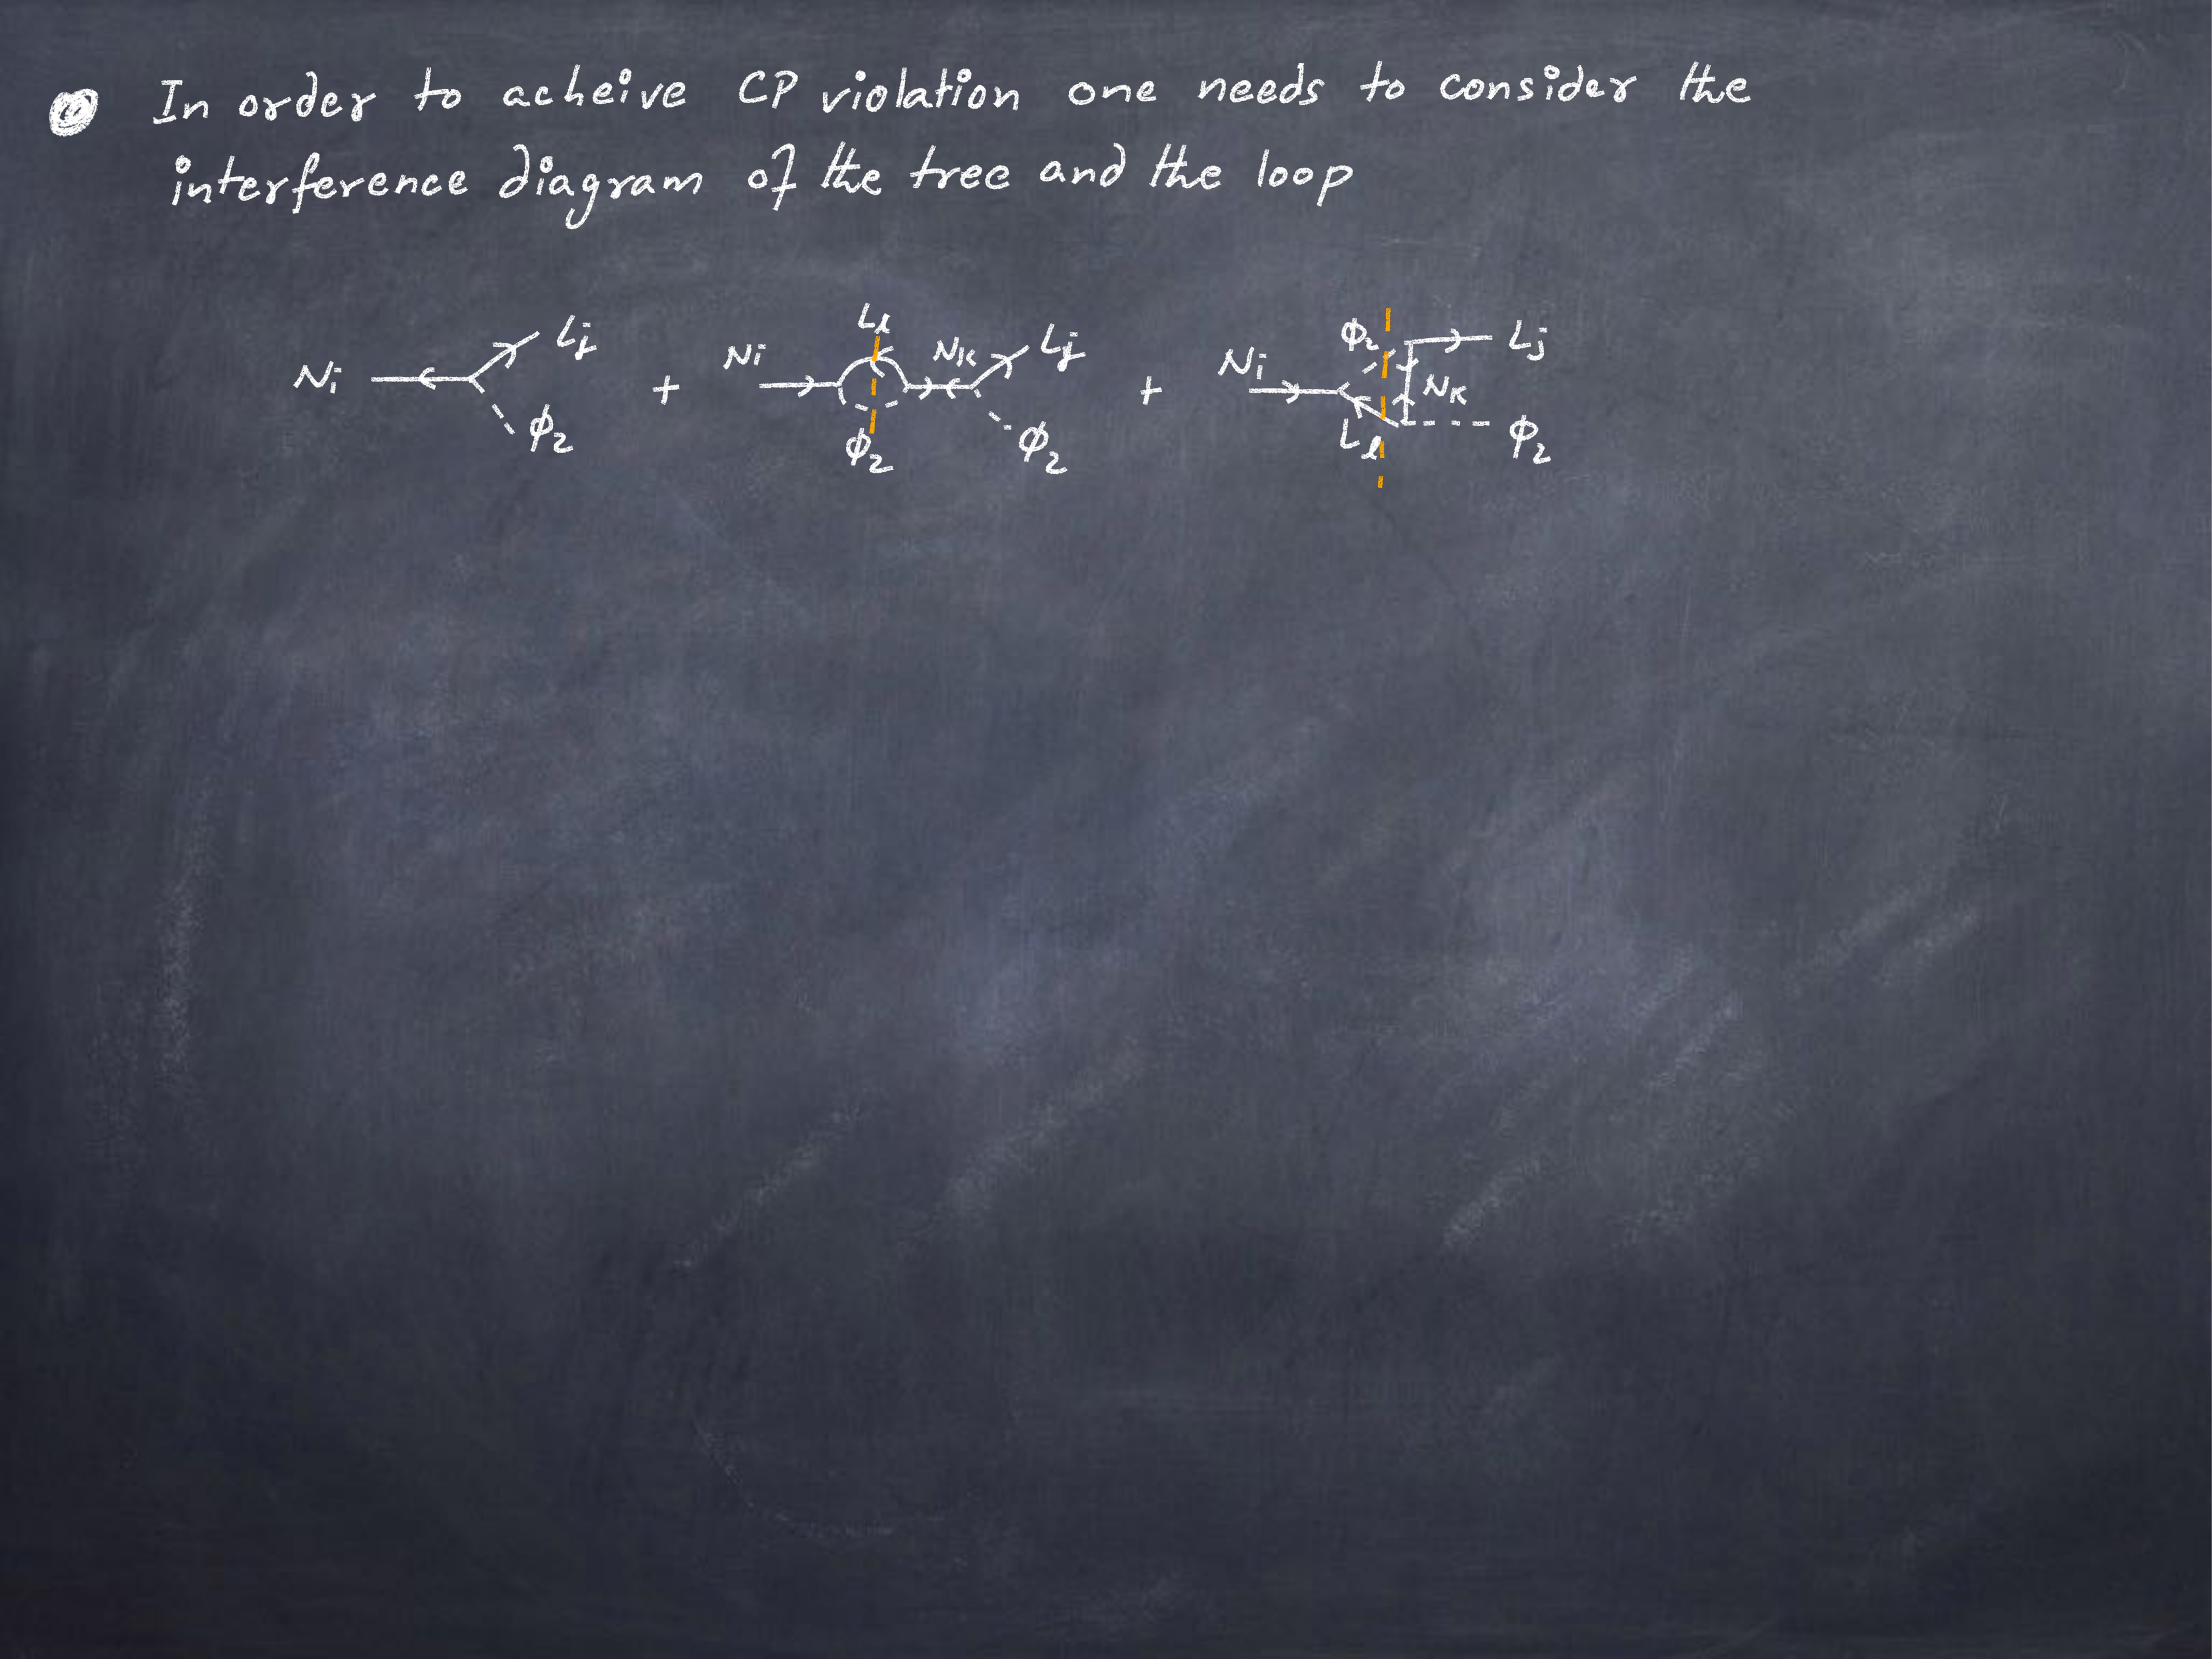 In order to acheive CP violation one needs to consider the
interference diagram of the tree and the loop
Ni Lj ϕ2 + Ni Ll ϕ2 NK Lj ϕ2 + Ni ϕ2 Ll NK Lj ϕ2